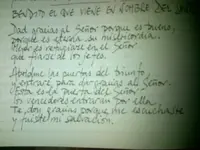 BENDITO EL QUE VIENE EN NOMBRE DEL SEÑOR
Dad gracias al Señor porque es bueno,
porque es eterna su misericordia.
Mejor es refugiarse en el Señor
que fiarse de los jefes.
Abridme las puertas del triunfo,
y entraré para dar gracias al Señor.
Esta es la puerta del Señor:
los vencedores entrarán por ella.
Te doy gracias porque me escuchaste
y fuiste mi salvación.